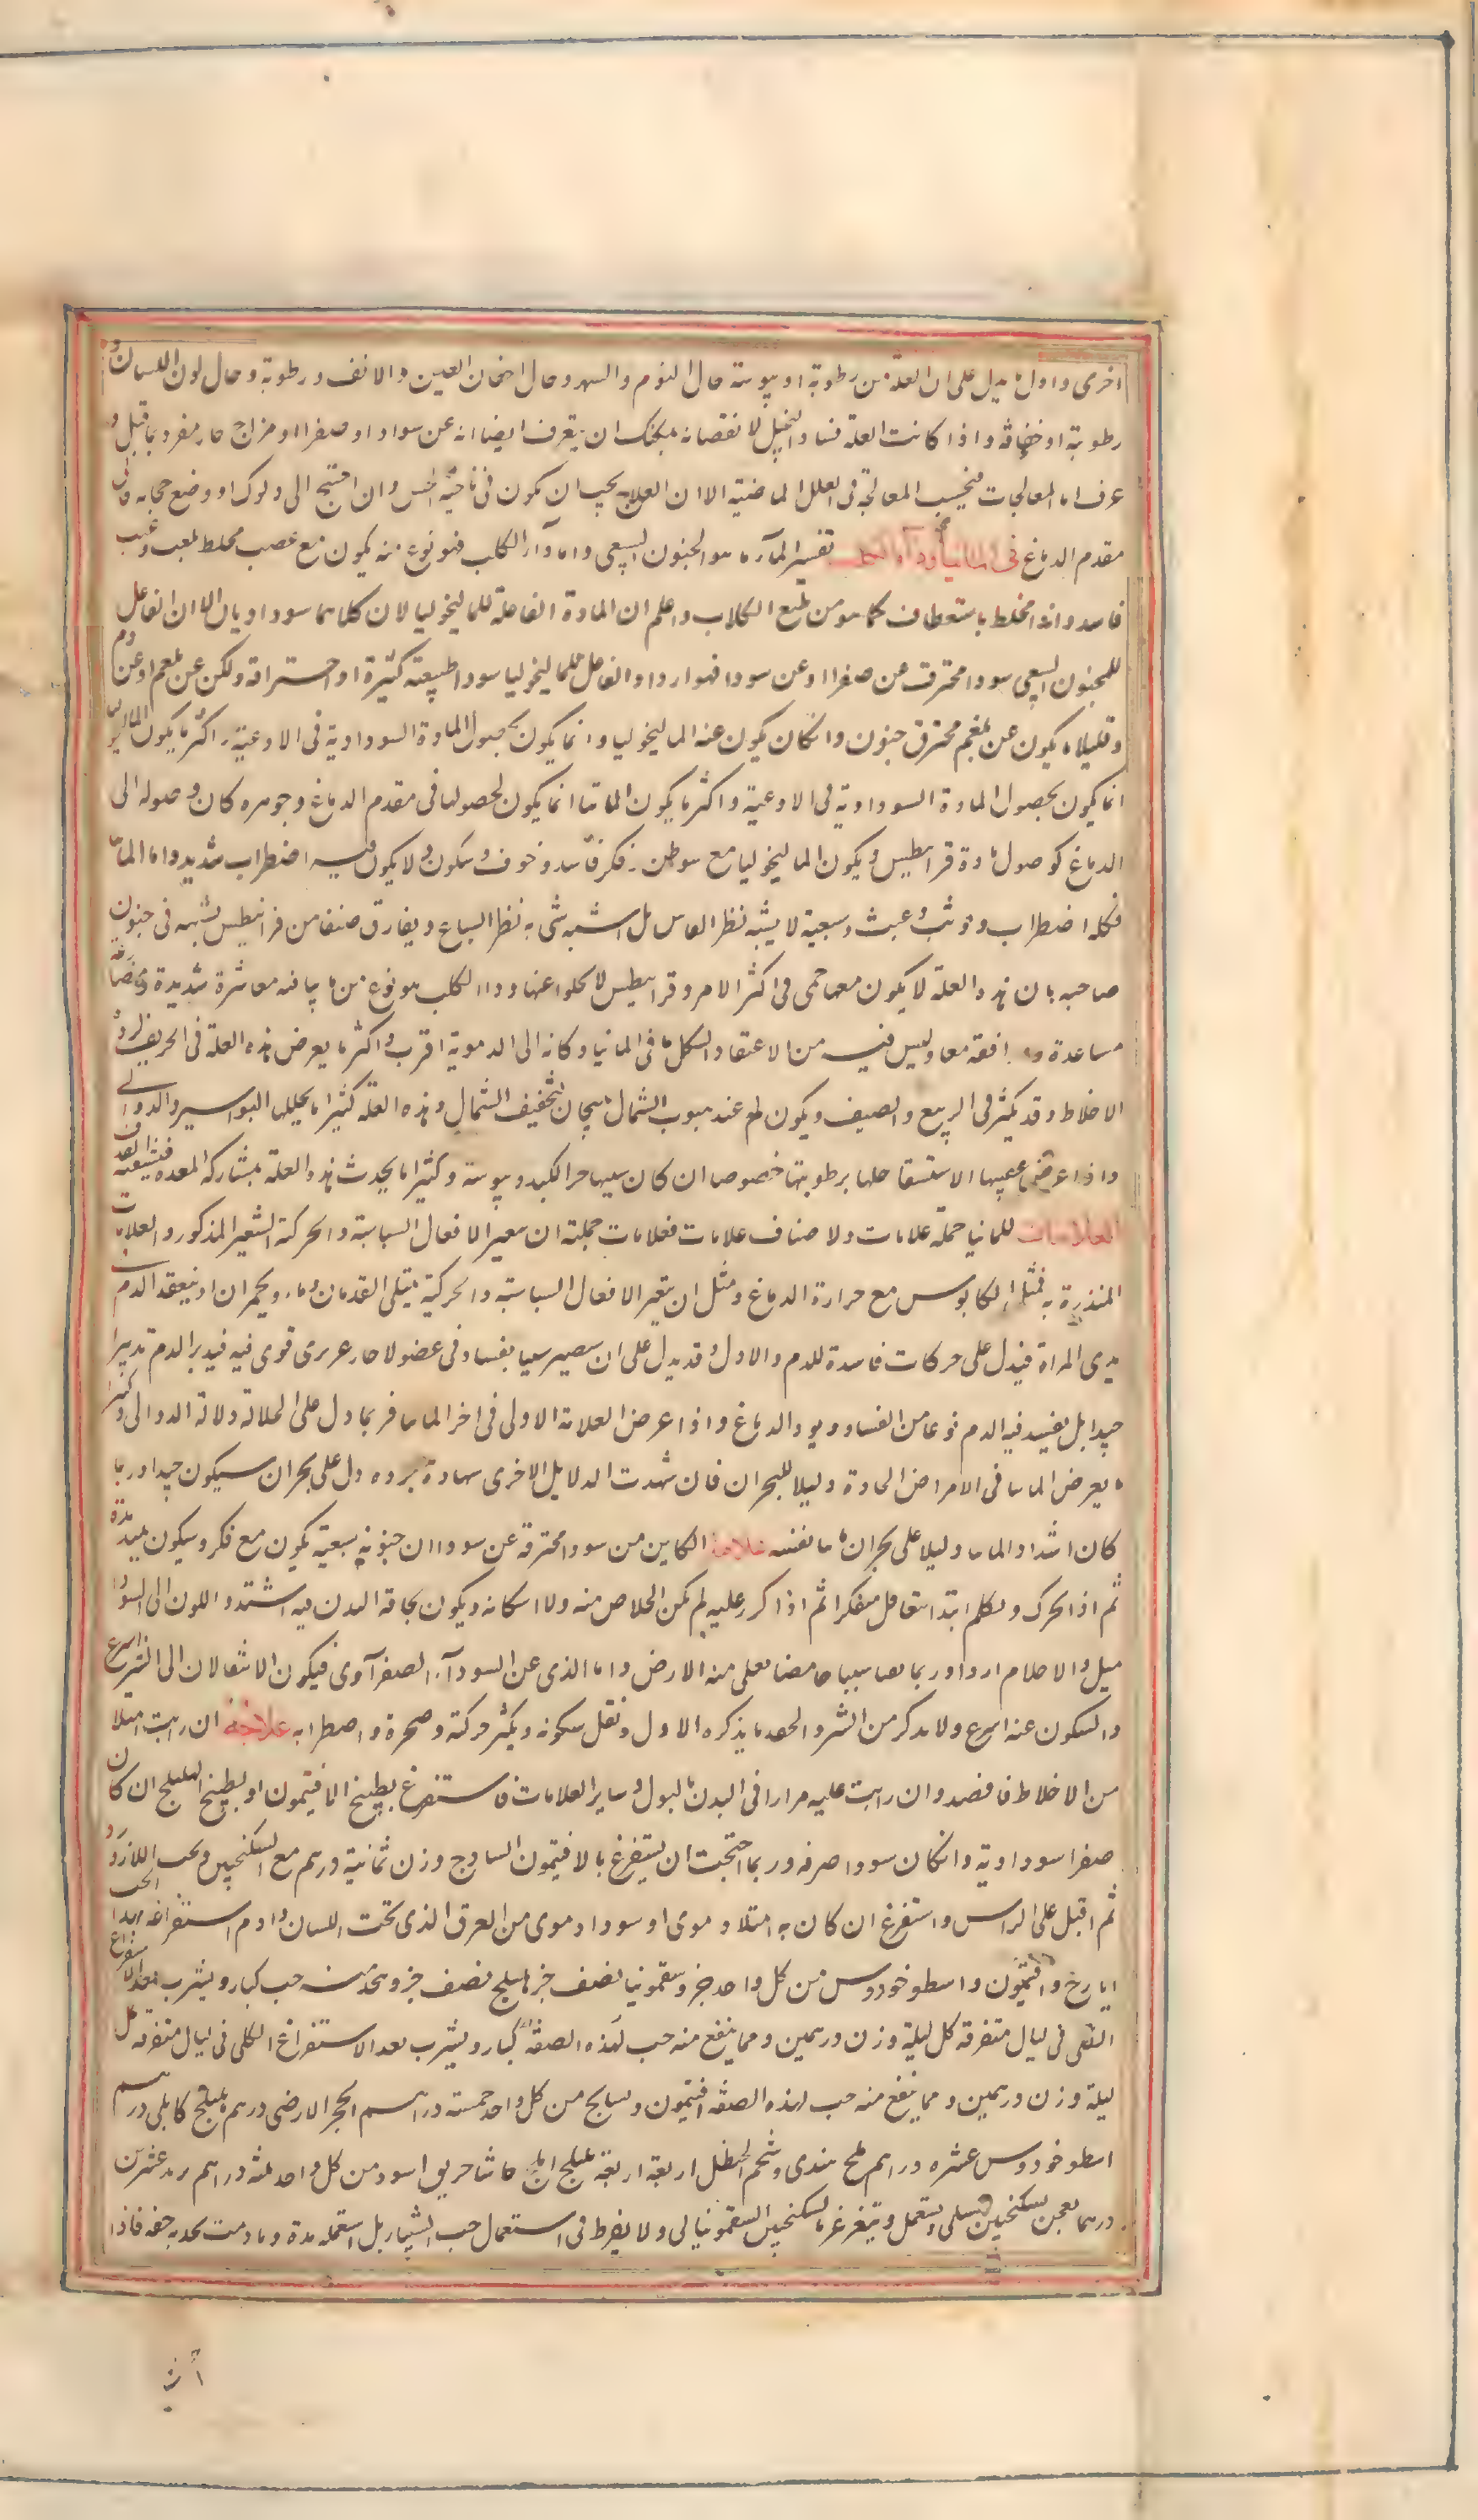 اخرى واول ما يدل على ان العلة من رطوبة او يبوسة حال النوم والسهر وحال اجفان العين والانف ورطوبة وحال لون اللسان و
رطوبة او جفافه واذا كانت العلة فساد التخيل لا نقصانه يمكنك ان يتعرف ايضا انه عن سوادا و صفراا و مزاج حار مفرد بما قيل و
عرف اما المعالجات فبحسب المعالجة فى العلل الماضية الا ان العلاج يجب ان يكون فى ناحية الحس وان احتيج الى دلوك او وضع حجامه فالى
مقدم الدماغ فى المانيا وداء الكلب تفسير المانيا هو الجنون السبعى واما داء الكلب فهو نوع منه يكون مع غضب مختلط بلعب وعبث
فاسد وانه مخلط باستعطاف كما هو من طبع الكلاب واعلم ان المادة الفاعلة للماليخوليا لان كلاهما سوداويان الا ان الفاعل
للجنون السبعى سودا محترق عن صفراا و عن سودا فهو اردا والفاعل للماليخوليا سودا طبيعة كثيرة او احتراقه ولكن عن بلغم او عن دم
وقليلا ما يكون عن بلغم محترق جنون وان كان يكون عنه الماليخوليا وانما يكون بحصول المادة السوداوية فى الاوعية واكثر ما يكون الماليخوليا
انما يكون بحصول المادة السوداوية فى الاوعية واكثر ما يكون المانيا انما يكون لحصولها فى مقدم الدماغ وجوهره كان وصوله الى
الدماغ كوصول مادة قرانيطس ويكون الماليخوليا مع سوء ظن و فكر فاسد و خوف و سكون ولا يكون فيه اضطراب شديد واما المانيا
فكله اضطراب وتوثب وعبث وسبعية لا يشبه نظر الناس بل اشبه شى به نظر السباع ويفارق صنفا من قرانيطس يشبه فى جنون
صاحبه بان هذه العلة لا يكون معها حمى فى اكثر الامر وقرانيطس لا يخلوا عنها ودا الكلب هو نوع من مانيا فيه معاشرة شديدة و
مساعدة و موافقه معا وليس فيه من الاعتقاد الكل ما فى المانيا وكانه الى الدموية اقرب واكثر ما يعرض هذه العلة فى الخريف لرداة
الاخلاط وقد يكثر فى الربيع والصيف ويكون له عند هبوب الشمال هيجان لتجفيف الشمال وهذه العلة كثيرا ما يحللها البواسير والدوالى
واذا عرض عقيبها الاستسقا حلها برطوبتها خصوصا ان كان سببها حر الكبد ويبوسته وكثيرا ما يحدث هذه العلة بمشاركة المعده فيشفيه القذف
العلامات للمانيا جملة علامات ولاصناف علامات فعلامات جملته ان يتغير الافعال السياسية والحركة التغير المذكور والعلامات
المنذرة به فمثل الكابوس مع حرارة الدماغ ومثل ان يتغير الافعال السياسية والحركية يمتلى القدمان دما و يحمران او ينعقد الدم
ثدى المراة فيدل على حركات فاسدة للدم والاول قد يدل على ان يصير سببا بفساد فى عضو لا حار غريزى قوى فيه فيدبر الدم تدبيرا
جيدا بل يفسد فيه الدم نوعا من الفساد و يوذ الدماغ واذا عرض العلامة الاولى فى اخر المانيا فربما دل على الخلاله دلالة الدوالى وكثيرا
ما يعرض المانيا فى الامراض الحادة دليلا للبحران فان شهدت الدلايل الاخرى شهادة جيده دل على بحران سيكون جيدا وربما
كان اشتداد المانيا دليلا على بحران مانيا نفسه علامة الكاين من سودا محترقة عن سوداا ن جنونه بسبعية يكون مع فكر وسكون يمتد مدة
ثم اذا تحرك وتكلم ابتدا بتعاقل متفكرا ثم اذا كرر عليه لم يمكن الخلاص منه ولا اسكانه ويكون نحافة البدن فيه اشتد واللون الى السواد
ميل والاحلام اردا وربما تقيا شيئا حامضا يغلى منه الارض واما الذى عن السودا الصفراوى فيكون الانتقال الى الشر اسرع
والسكون عنه اسرع ولا يذكر من الشر والحقد ما يذكره الاول وتقل سكونه ويكثر حركته وضجره واضطرابه علاجه ان رايت امتلا
من الاخلاط فافصد وان رايت عليه مرارا فى البدن بالبول وساير العلامات فاستفرغ بطبيخ الافتيمون او بطبيخ الهليلج ان كان
صفرا سوداوية وان كان سودا صرفه وربما احتجت ان يستفرغ بالافتيمون الساذج وزن ثمانية درهم مع السكنجبين وبحب اللازورد
ثم اقبل على الراس واستفرغ ان كان به امتلا دموى او سودا دموى من العرق الذى تحت اللسان وادم استفراغه ابدا الحب
ايارج وافتيمون واسطوخودوس من كل واحد جزو سقمونيا نصف جز هليلج نصف جزو يتخذ منه حب كبار ويشرب بعد الاستفراغ
النقى فى ليال متفرقة كل ليلة وزن درهمين ومما ينفع منه حب لهذه الصفة كبار ويشرب بعد الاستفراغ الكلى فى ليال متفرقه كل
ليلة وزن درهمين ومما ينفع منه حب لهذه الصفه افتيمون وبسابج من كل واحد خمسة دراهم الحجر الارمنى درهم هليلج كابلى درهم
اسطوخودوس عشره دراهم ملح هندى وشحم الحنظل اربعة اربعة بليلج املج حاشا خربق اسود من كل واحد ثلثه دراهم تربد عشرين
درهما يعجن بسكنجبين عسلى ويستعمل ويتغرغر بالسكنجبين السقمونيالى ولا يفرط فى استعمال حب الشبيار بل استعمله مدة وما دمت تجد به خفه فاذا